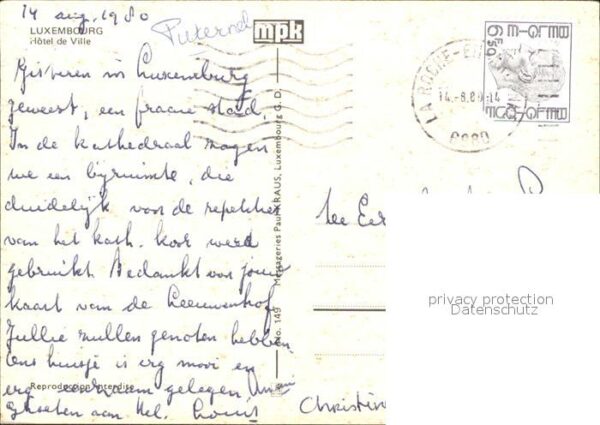 14 aug. 1980
LUXEMBOURG
Hôtel de Ville
mpk
Gisteren in Luxemburg
geweest, een fraaie stad.
In de kathedraal zagen
we een bijruimte, die
duidelijk voor de repetities
van het kath. koor werd
gebruikt. Bedankt voor jouw
kaart van de Leeuwenhof
Jullie zullen genoten hebben
Ons huisje is erg mooi en
erg eenzaam gelegen
Groeten aan Nel. Louis
Christine
Reproduction interdite
No. 149 Messageries Paul KRAUS, Luxembourg G. D.
LA ROCHE-EN
14.-8.80-14
6980
BELGIE-BELGIQUE
6F50
privacy protection
Datenschutz